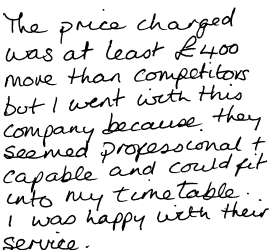 The price charged
was at least £400
more than competitors
but I went with this
company because they
seemed professional +
capable and could fit
into my timetable.
I was happy with their
service.